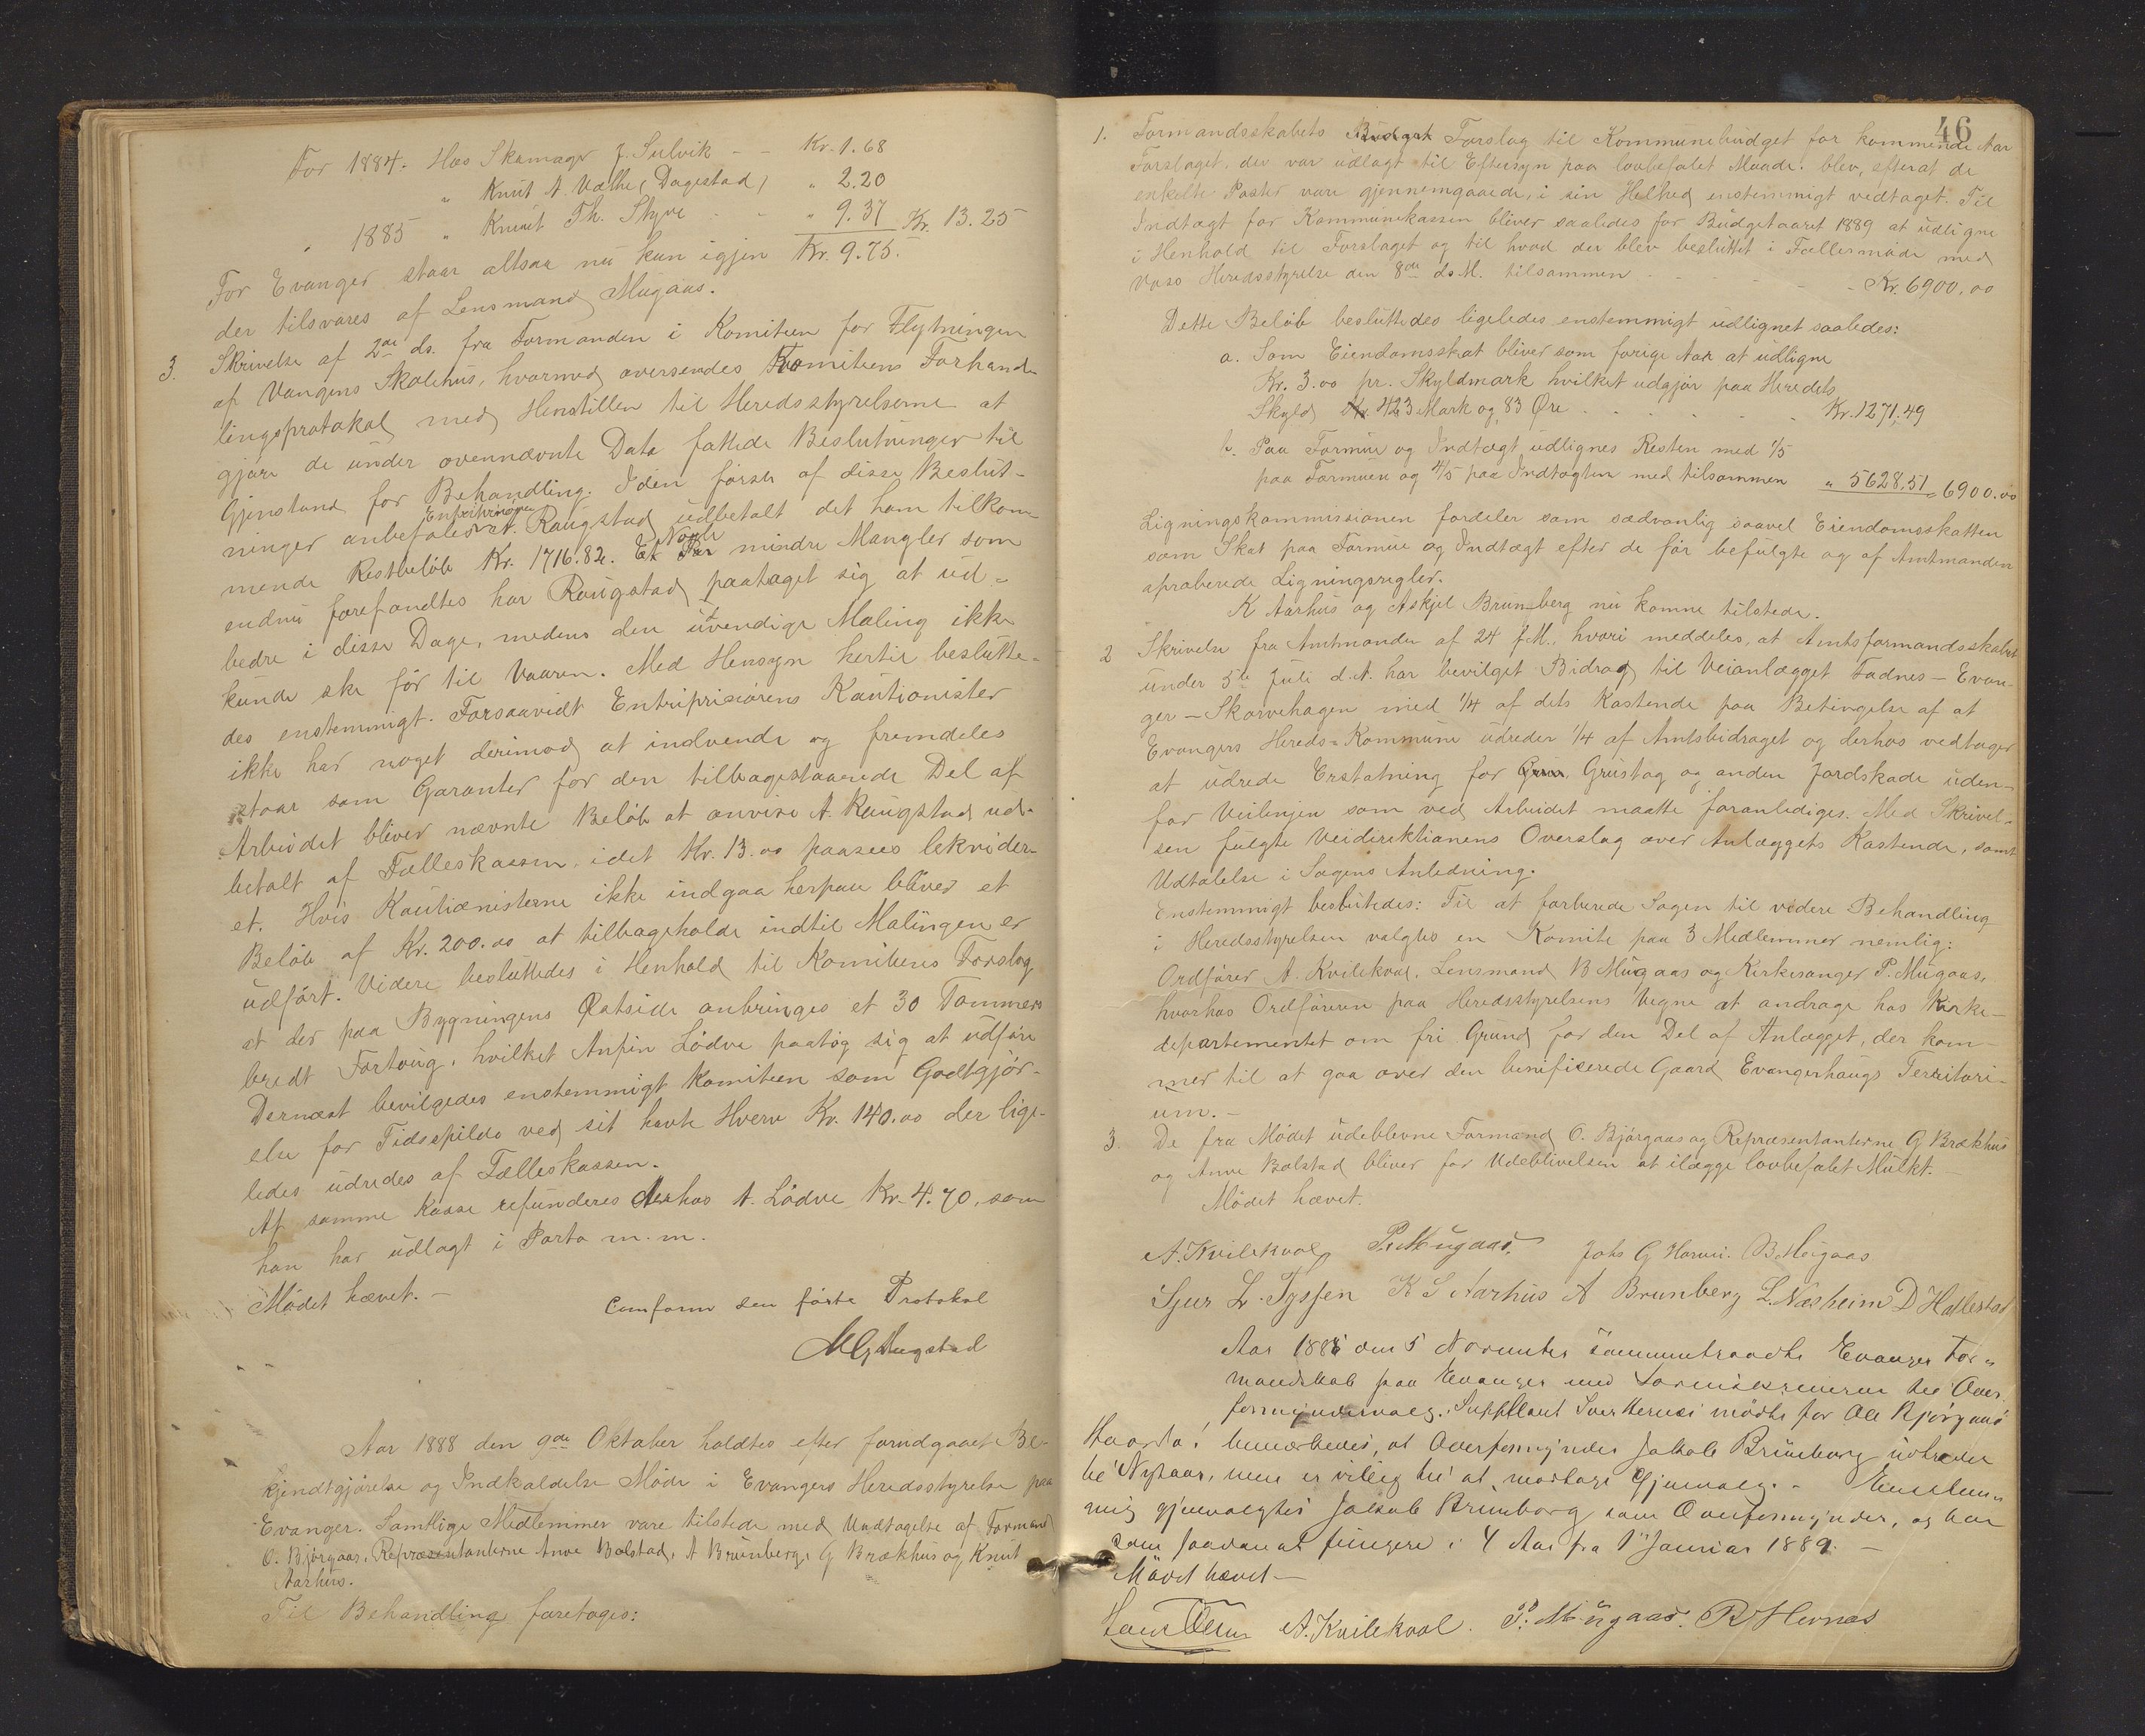 For 1884. Hos Skomager J. Sulvik - - Kr. 1.68
" Knut A. Vethe (Dagestad) " 2.20
" 1885 " Knut Th. Skjve - - " 9.37 Kr. 13.25
For Evanger staar altsaa nu kun igjen Kr. 9.75.
der tilsvares af Lensmand Mugaas.
3. Skrivelse af 2de ds. fra Formanden i Komiteen for Flytningen
af Vangens Skolehus, hvormed oversendes Komiteens Forhand-
lingsprotokol med Henstillen til Heredsstyrelserne at
gjøre de under ovennævnte Dato fattede Beslutninger til
Gjenstand for Behandling. I den første af disse Beslut-
ninger anbefales Entreprenøren A. Raugstad udbetalt det ham tilkom-
mende Restbeløb Kr. 1716.82. Nogle mindre Mangler som
endnu forefandtes har Raugstad paataget sig at ud-
bedre i disse Dage, medens den udvendige Maling ikke
kunde ske før til Vaaren. Med Hensyn hertil beslutte-
des enstemmigt. Forsaavidt Entreprisørens Kautionister
ikke har noget derimod at indvende og fremdeles
staar som Garanter for den tilbagestaaende Del af
Arbeidet bliver nævnte Beløb at anvise A. Raugstad ud-
betalt af Fælleskassen, idet Kr. 13.00 paasees lekvider-
et. Hvis Kautionisterne ikke indgaa herpaa bliver et
Beløb af Kr. 200.00 at tilbageholde indtil Malingen er
udført. Videre besluttedes i Henhold til Komiteens Forslag
at der paa Bygningens Østside anbringes et 30 Tommers
bredt Fortoug, hvilket Anfin Lødve paatog sig at udføre
Dernæst bevilgedes enstemmigt Komiteen som Godtgjør-
else for Tidsspilde ved sit havte Hverv Kr. 140.00 der lige-
ledes udredes af Fælleskassen.
Af samme Kasse refunderes derhos A. Lødve Kr. 4.70, som
han har udlagt i Porto m.m.
Mødet hævet. -
Conform den førte Protokol
Aar 1888 den 9de Oktober holdtes efter forudgaaet Be-
kjendtgjørelse og Indkaldelse Møde i Evangers Heredsstyrelse paa
Evanger. Samtlige Medlemmer vare tilstede med Undtagelse af Formand
O. Bjørgaas, Repræsentanterne Anve Bolstad, A Brunberg, G Brækhus og Knut
Aarhus.
Til Behandling foretoges:
46
1. Formandsskabets Budget Forslag til Kommunebudget for kommende Aar
Forslaget, der var udlagt til Eftersyn paa lovbefalet Maade, blev, efterat de
enkelte Poster vare gjennemgaaede, i sin Helhed enstemmigt vedtaget. Til
Indtægt for Kommunekassen bliver saaledes for Budgetaaret 1889 at udligne
i Henhold til Forslaget og til hvad der blev besluttet i Fællesmøde med
Voss Heredsstyrelse den 8de ds. M. tilsammen - - - - Kr. 6900,00
Dette Beløb besluttedes ligeledes enstemmigt udlignet saaledes:
a. Som Eiendomsskat bliver som forige Aar at udligne
Kr. 3.00 pr. Skyldmark hvilket udgjør paa Heredets
Skyld 423 Mark og 83 Øre - - - - Kr. 1271,49
b. Paa Formue og Indtægt udlignes Resten med 1/5
paa Formuen og 4/5 paa Indtægten med tilsammen " 5628,51 = 6900.00
Ligningskommissionen fordeler som sædvanlig saavel Eiendomsskatten
som Skat paa Formue og Indtægt efter de før befulgte og af Amtmanden
aproberede Ligningsregler.
K Aarhus og Askjel Brunberg nu komne tilstede.
2 Skrivelse fra Amtmanden af 24 f.M., hvori meddeles, at Amtsformandsskabet
under 5te Juli d.A. har bevilget Bidrag til Veianlægget Fadnes - Evan-
ger - Skorvehagen med 1/4 af dets Kostende paa Betingelse af at
Evangers Hereds-Kommune udreder 1/4 af Amtsbidraget og derhos vedtager
at udrede Erstatning for Grustag og anden Jordskade uden-
for Veilinjen som ved Arbeidet maatte foranlediges. Med Skrivel-
sen fulgte Veidirektionens Overslag over Anlæggets Kostende, samt
Udtalelse i Sagens Anledning.
Enstemmigt besluttedes: Til at forberede Sagen til videre Behandling
i Heredsstyrelsen valgtes en Komite paa 3 Medlemmer nemlig:
Ordfører A. Kvilekval, Lensmand B Mugaas og Kirkesanger P. Mugaas,
hvorhos Ordføreren paa Heredsstyrelsens Vegne at andrage hos Kirke-
departementet om fri Grund for den Del af Anlægget, der kom-
mer til at gaa over den benificerede Gaard Evangerhaugs Territori-
um. -
3. De fra Mødet udeblevne Formand O. Bjørgaas og Repræsentanterne G Brækhus
og Anve Bolstad bliver for Udeblivelsen at ilægge lovbefalet Mulkt. -
Mødet hævet.
A. Kvilekval P. Mugaas. Johs G Horvei. B. Mugaas
Sjur L. Tyssen K S Aarhus A Brunberg L. Næsheim D Hallestad
Aar 1888 den 5 November sammentraadte Evanger For-
mandskab paa Evanger med til Over
formynder. Supplant mødte for Ole Bjørgaas
bemærkedes, at Overformynder Jakob Brunborg udtræder
til Nytaar, men er villig til at modtage Gjenvalg. - Enstem-
mig gjenvalgtes Jakob Brunborg som Overformynder, og har
som saadan at fungere i 4 Aar fra 1 Januar 1889. -
Mødet hævet -
A. Kvilekval. P. Mugaas. B Hernes